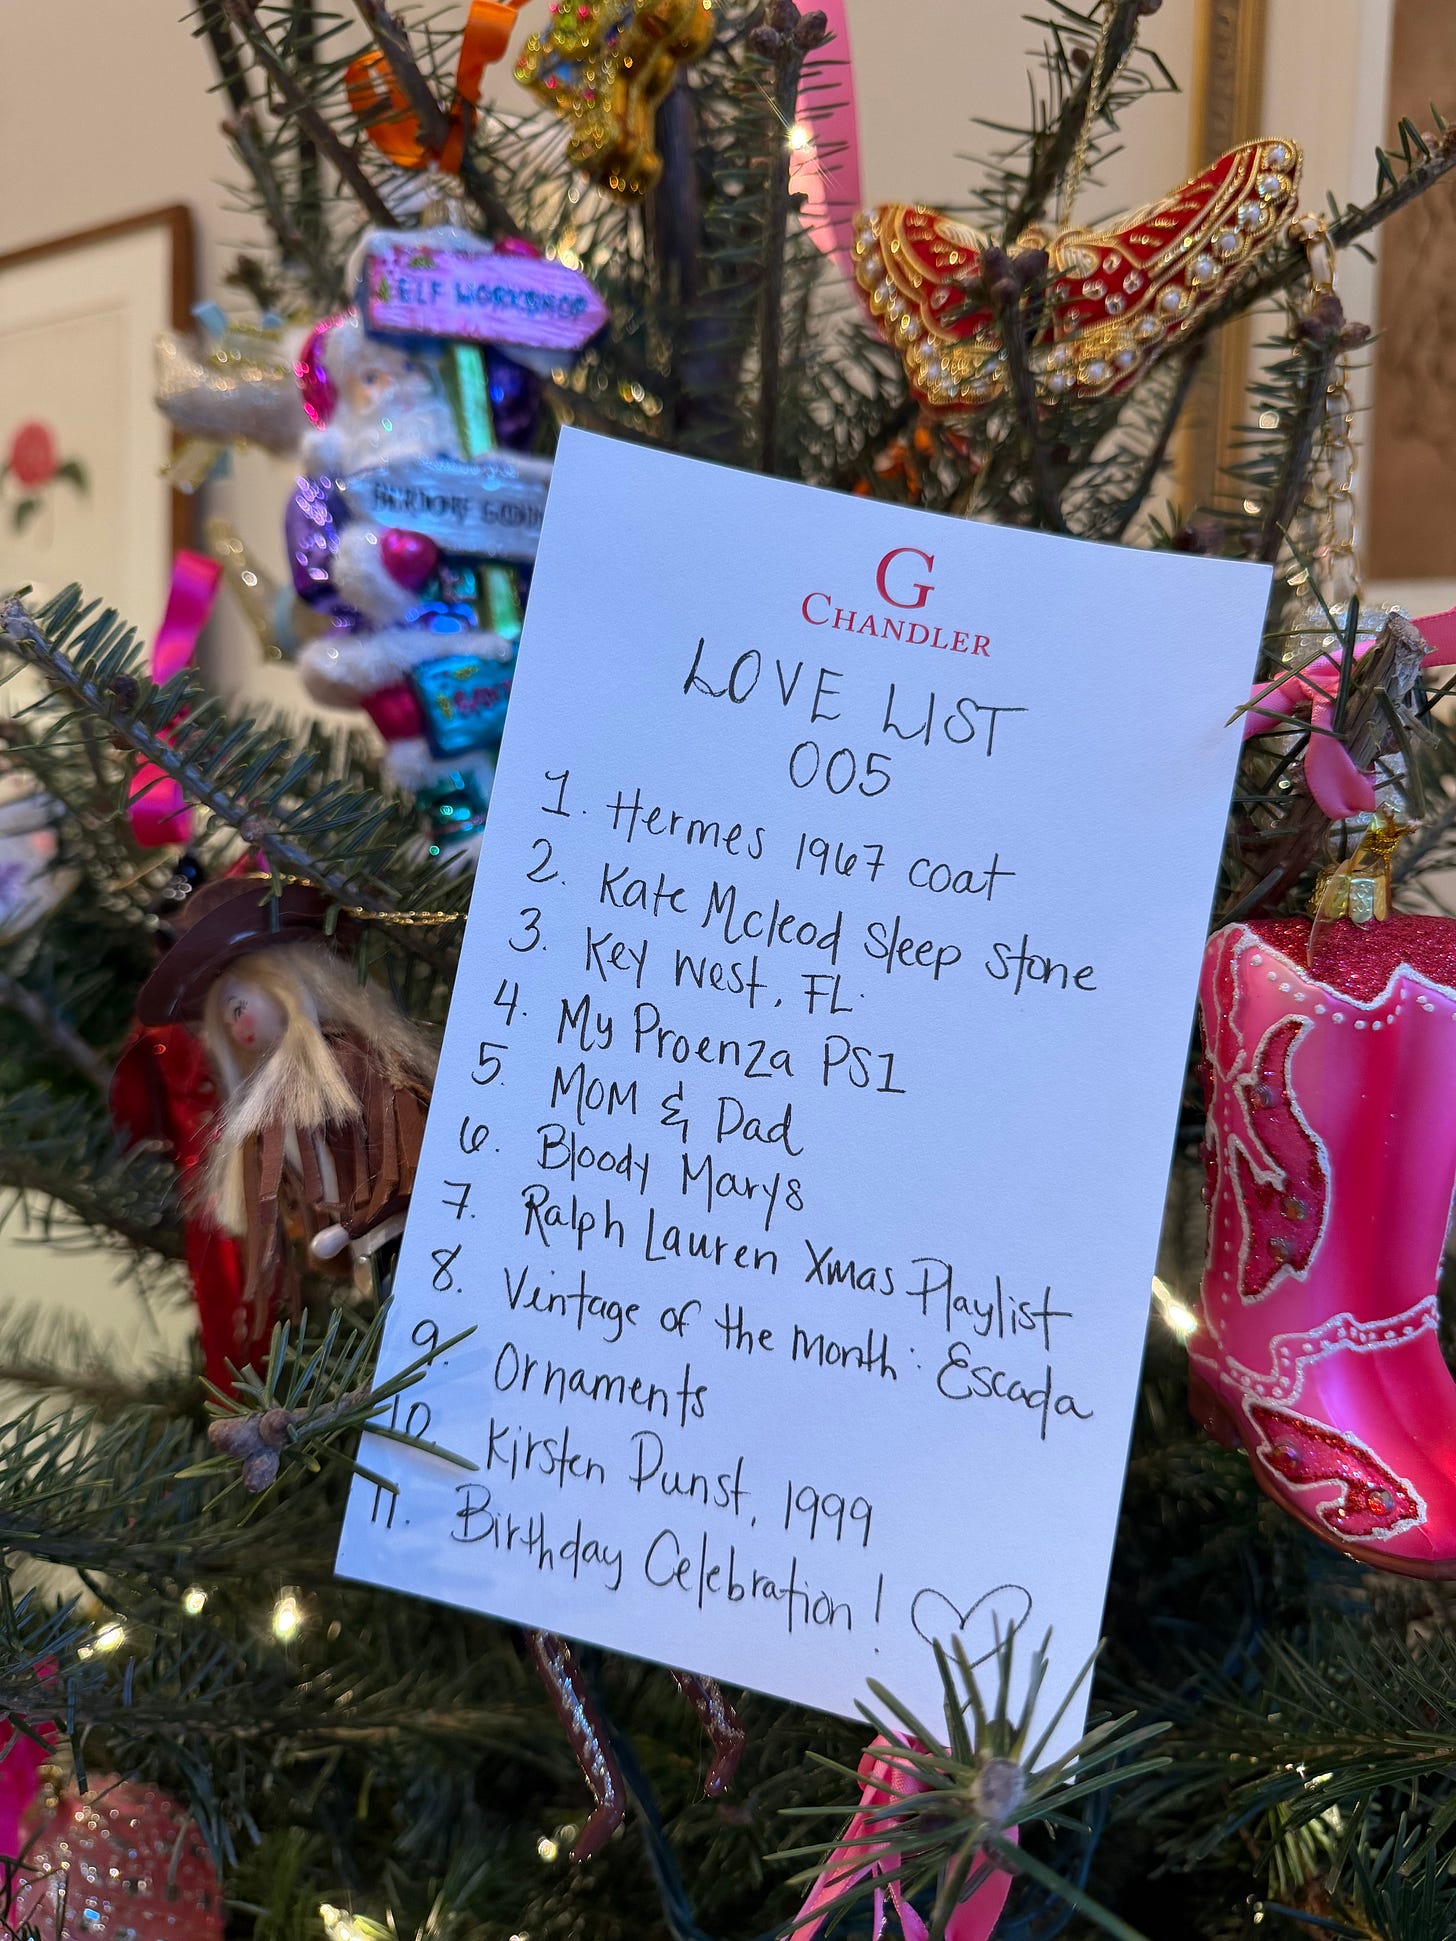 ELF WORKSHOP
BERGDORF GOOD
G
CHANDLER
LOVE LIST
005
1. Hermes 1967 coat
2. Kate Mcleod Sleep Stone
3. Key West, FL.
4. My Proenza PS1
5. MOM & Dad
6. Bloody Marys
7. Ralph Lauren Xmas Playlist
8. Vintage of the Month: Escada
9. Ornaments
10. Kirsten Dunst, 1999
11. Birthday Celebration!